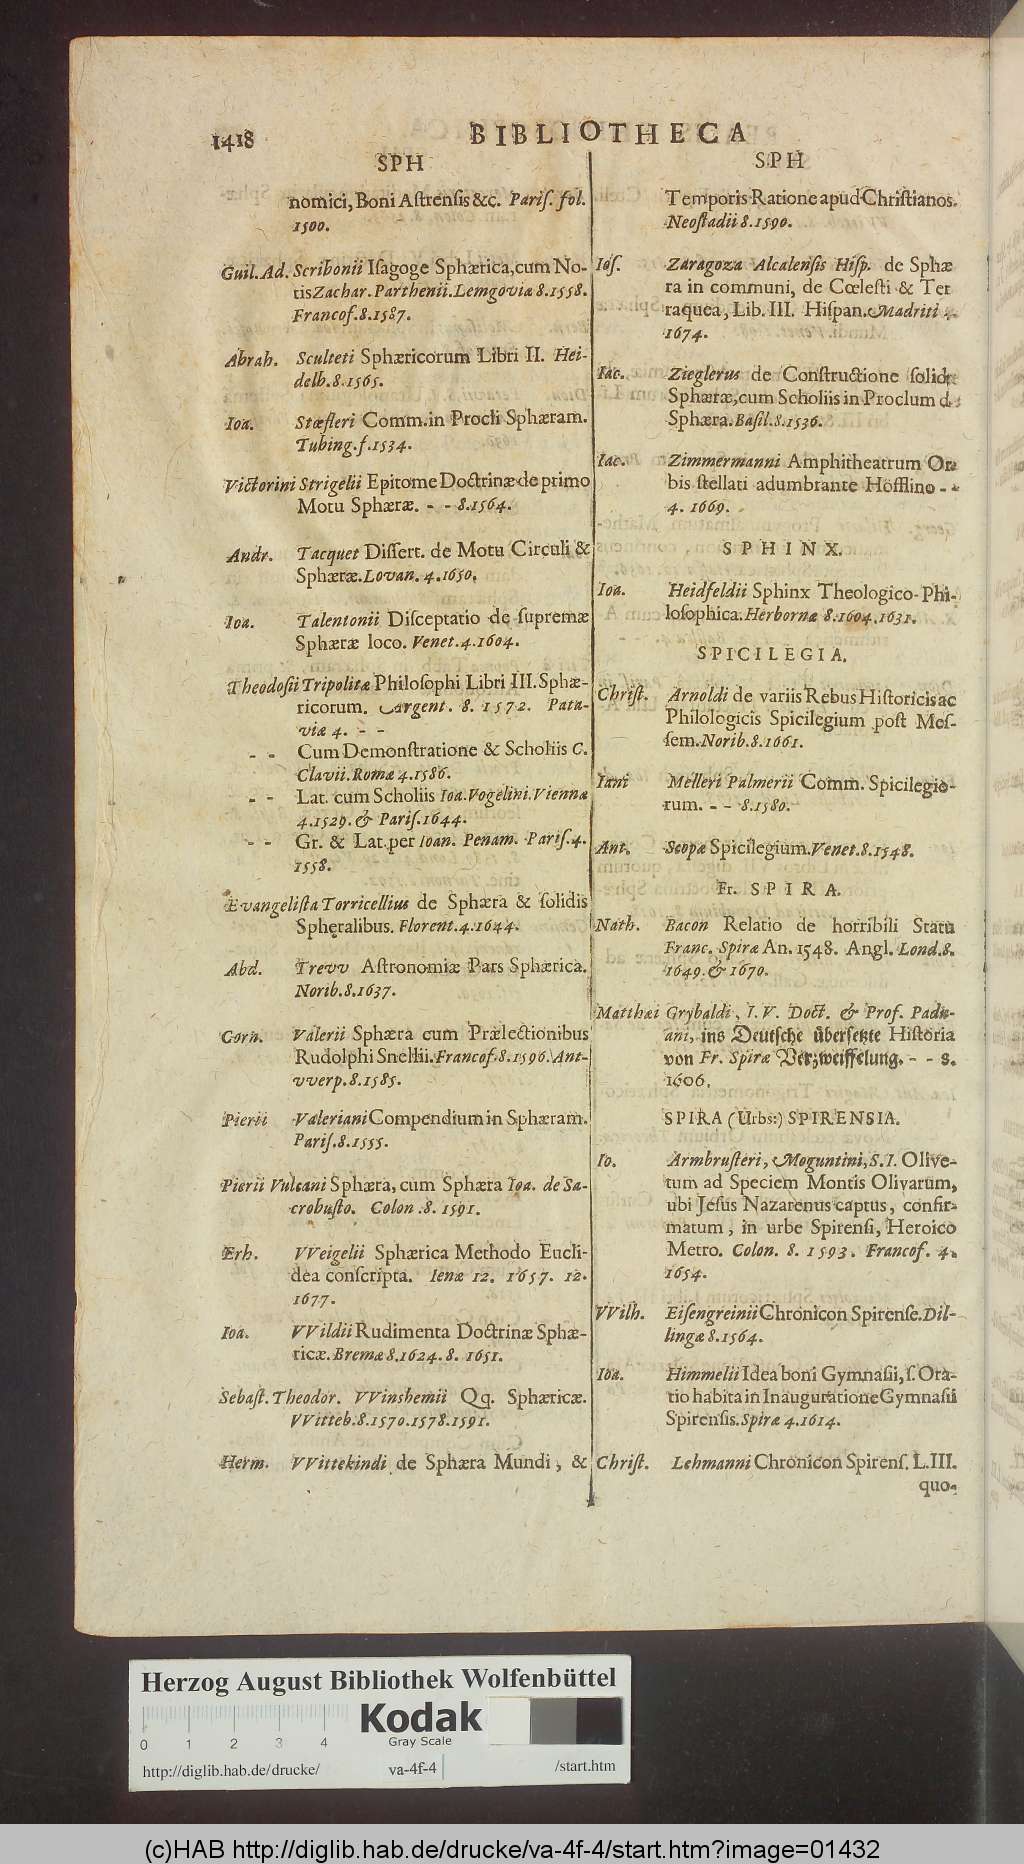 1418
BIBLIOTHECA
SPH
nomici, Boni Astrensis &c. Paris. fol.
1500.
Guil. Ad. Scribonii Isagoge Sphærica, cum No-
tis Zachar. Parthenii. Lemgoviæ 8. 1558.
Francof. 8. 1587.
Abrah. Sculteti Sphæricorum Libri II. Hei-
delb. 8. 1565.
Ioa. Stæfleri Comm. in Procli Sphæram.
Tubing. f. 1534.
Victorini Strigelii Epitome Doctrinæ de primo
Motu Sphæræ. - - 8. 1564.
Andr. Tacquet Dissert. de Motu Circuli &
Sphæræ. Lovan. 4. 1650.
Ioa. Talentonii Disceptatio de supremæ
Sphæræ loco. Venet. 4. 1604.
Theodosii Tripolitæ Philosophi Libri III. Sphæ-
ricorum. Argent. 8. 1572. Pata-
viæ 4. - -
- - Cum Demonstratione & Scholiis C.
Clavii. Romæ 4. 1586.
- - Lat. cum Scholiis Ioa. Vogelini. Viennæ
4. 1529. & Paris. 1644.
- - Gr. & Lat. per Ioan. Penam. Paris. 4.
1558.
Evangelista Torricellius de Sphæra & solidis
Spheralibus. Florent. 4. 1644.
Abd. Trevv Astronomiæ Pars Sphærica.
Norib. 8. 1637.
Corn. Valerii Sphæra cum Prælectionibus
Rudolphi Snellii. Francof. 8. 1596. Ant-
vverp. 8. 1585.
Pierii Valeriani Compendium in Sphæram.
Paris. 8. 1555.
Pierii Vulcani Sphæra, cum Sphæra Ioa. de Sa-
crobusto. Colon. 8. 1591.
Erh. VVeigelii Sphærica Methodo Eucli-
dea conscripta. Ienæ 12. 1657. 12.
1677.
Ioa. VVildii Rudimenta Doctrinæ Sphæ-
ricæ. Bremæ 8. 1624. 8. 1651.
Sebast. Theodor. VVinshemii Qq. Sphæricæ.
VVitteb. 8. 1570. 1578. 1591.
Herm. VVittekindi de Sphæra Mundi, &
SPH
Temporis Ratione apud Christianos.
Neostadii 8. 1590.
Ios. Zaragoza Alcalensis Hisp. de Sphæ
ra in communi, de Cœlesti & Ter
raquea, Lib. III. Hispan. Madriti 4.
1674.
Iac. Zieglerus de Constructione solidæ
Sphæræ, cum Scholiis in Proclum de
Sphæra. Basil. 8. 1536.
Iac. Zimmermanni Amphitheatrum Or-
bis stellati adumbrante Höfflino - -
4. 1669.
SPHINX.
Ioa. Heidfeldii Sphinx Theologico-Phi-
losophica. Herbornæ 8. 1604. 1631.
SPICILEGIA.
Christ. Arnoldi de variis Rebus Historicis ac
Philologicis Spicilegium post Mes-
sem. Norib. 8. 1661.
Iani Melleri Palmerii Comm. Spicilegio-
rum. - - 8. 1580.
Ant. Scopæ Spicilegium. Venet. 8. 1548.
Fr. SPIRA.
Nath. Bacon Relatio de horribili Statu
Franc. Spiræ An. 1548. Angl. Lond. 8.
1649. & 1670.
Matthæi Grybaldi, I. V. Doct. & Prof. Padu-
ani, ins Deutsche übersetzte Historia
von Fr. Spiræ Verzweiffelung. - - 8.
1606.
SPIRA (Urbs:) SPIRENSIA.
Io. Armbrusteri, Moguntini, S. I. Olive-
tum ad Speciem Montis Olivarum,
ubi Jesus Nazarenus captus, confir-
matum, in urbe Spirensi, Heroico
Metro. Colon. 8. 1593. Francof. 4.
1654.
VVilh. Eisengreinii Chronicon Spirense. Dil-
lingæ 8. 1564.
Ioa. Himmelii Idea boni Gymnasii, s. Ora-
tio habita in Inauguratione Gymnasii
Spirensis. Spiræ 4. 1614.
Christ. Lehmanni Chronicon Spirens. L. III.
quo-
Herzog August Bibliothek Wolfenbüttel
Kodak
Gray Scale
0 1 2 3 4
http://diglib.hab.de/drucke/ va-4f-4 /start.htm
(c)HAB http://diglib.hab.de/drucke/va-4f-4/start.htm?image=01432